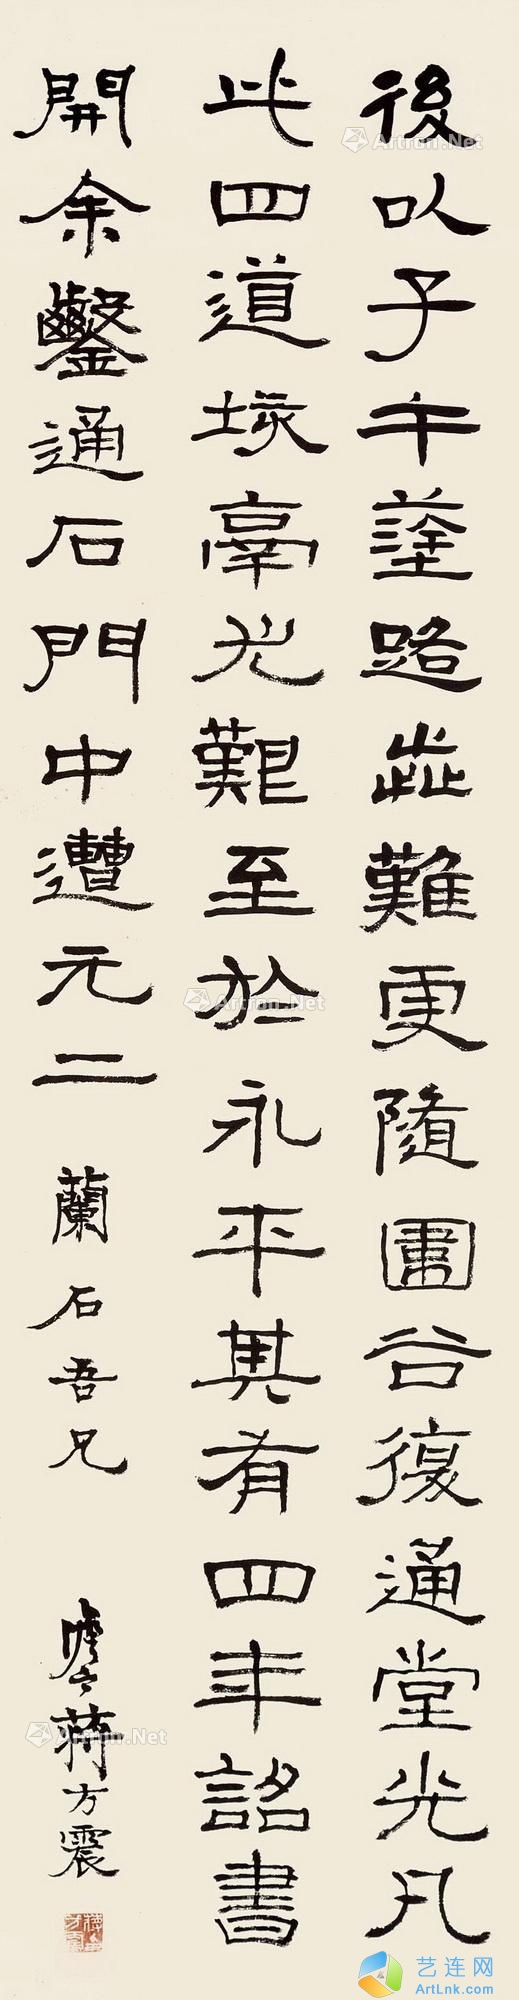 後以子午塗路歰難更隨圍谷復通堂光凡
此四道垓鬲尤艱至於永平其有四年詔書
開余鑿通石門中遭元二
蘭石吾兄
澹宁蔣方震
Artron.Net
Artron.Net
Artron.Net
Artron.Net
艺连网
ArtLnk.com